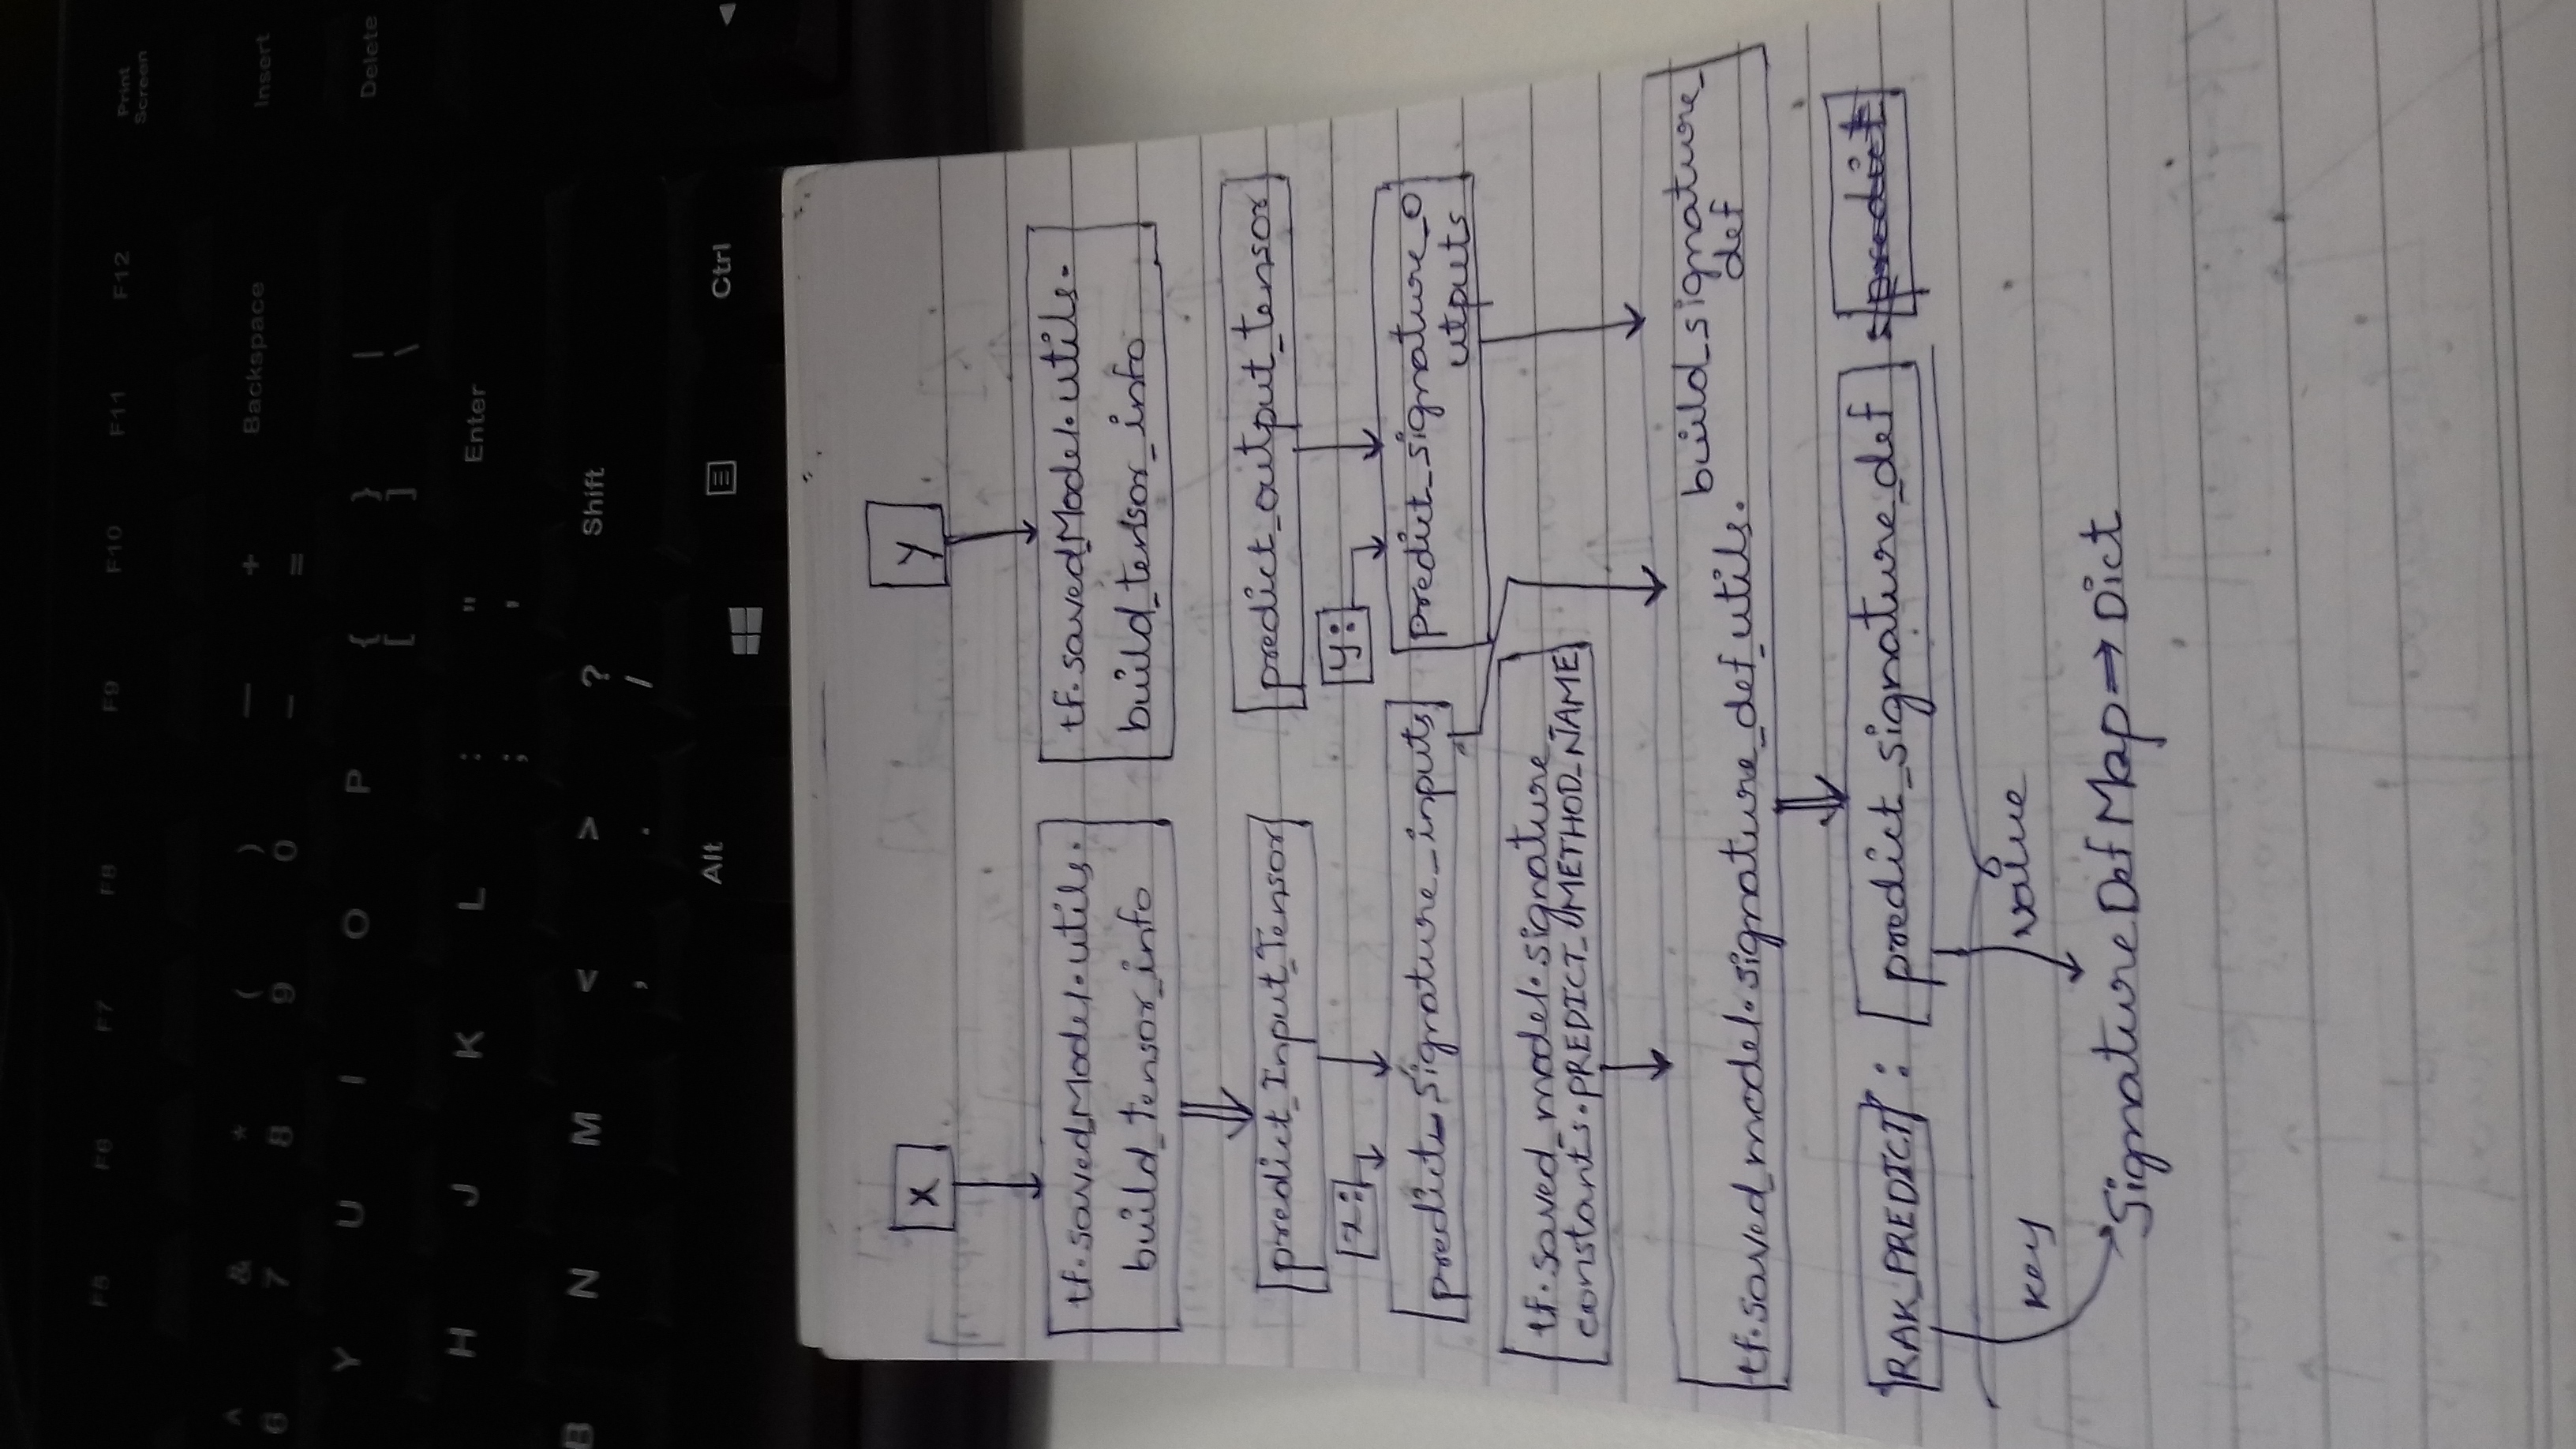 F5 F6 F7 F8 F9 F10 F11 F12 Print
Screen
^ & * ( ) — + Backspace Insert
6 7 8 9 0 - =
Y U I O P { } | Delete
[ ] \
H J K L : " Enter
; '
B N M < > ? Shift
, . /
Alt Ctrl
x y
tf.saved_Model.utils. tf.saved_Model.utils.
build_tensor_info build_tensor_info
predict_Input_Tensor predict_output_tensor
x: y:
predict_signature_inputs predict_signature_o
utputs
tf.saved_model.signature_
constants.PREDICT_METHOD_NAME
build_signature_
tf.saved_model.signature_def_utils. def
'RAK_PREDICT' : predict_signature_def : predict
key value
SignatureDefMap ⇒ Dict